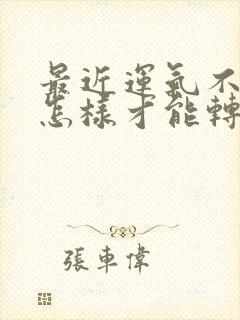 最近運氣不
怎樣才能轉
張車偉